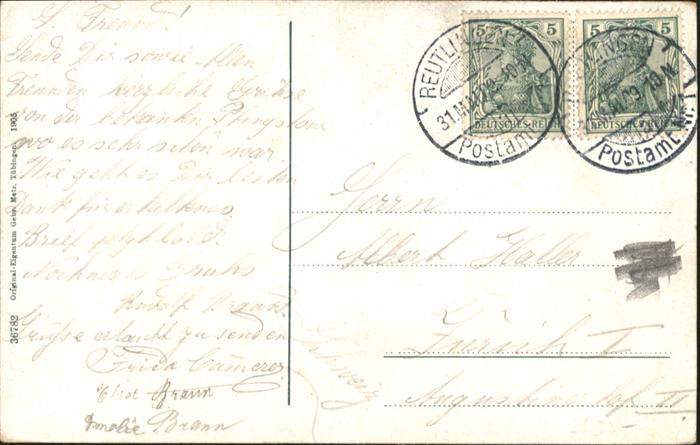 L. Freund!
Sende Dir sowie Allen
Freunden herzliche Grüße
von der bekannten Pfingsttour
wo es sehr schön war.
Wie geht es Dir besten
Dank für erhaltenes
Brief folgt bald.
Nochmals Gruß
Rudolf Braun
Grüsse erlaubt zu senden
Frida Camerer
Elise Braun
Amalie Braun
36782 Original-Eigentum Gebr. Metz, Tübingen 1905
5 5
DEUTSCHES REICH
5 5
DEUTSCHES REICH
REUTLINGEN
31.MAI.09
Postamt
Postamt Nr. 1
Herrn
Albert Haller
Zürich I
Augustinerhof
Schweiz